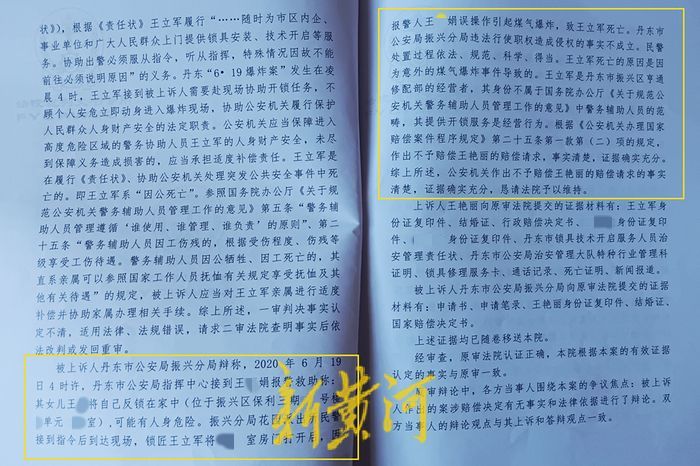 状》），根据《责任状》王立军履行“……随时为市区内企、
事业单位和广大人民群众上门提供锁具安装、技术开启等服
务。协助出警必须服从指挥，听从指挥，特殊情况因故不能
前往必须说明原因”的义务。丹东“6·19爆炸案”发生在凌
晨4时，王立军接到被上诉人需要赴现场协助开锁任务，不
顾个人安危立即动身进入爆炸现场，协助公安机关履行保护
人民群众人身财产安全的法定职责。公安机关应当保障进入
高度危险区域的警务协助人员王立军的人身财产安全，未尽
到保障义务造成损害的，应当承担适度补偿责任。王立军是
在履行《责任状》、协助公安机关处理突发公共安全事件中死
亡的。即王立军系“因公死亡”。参照国务院办公厅《关于规
范公安机关警务辅助人员管理工作的意见》第五条“警务辅
助人员管理遵循‘谁使用、谁管理、谁负责’的原则”、第二
十五条“警务辅助人员因工伤残的，根据受伤程度、伤残等
级享受工伤待遇。警务辅助人员因公牺牲、因工死亡的，其
直系亲属可以参照国家工作人员抚恤有关规定享受抚恤及其
他有关待遇”的规定，被上诉人应当对王立军亲属进行适度
补偿并协助家属办理相关手续。综上所述，一审判决事实认
定不清，适用法律、法规错误，请求二审法院查明事实后依
法改判或发回重审。
被上诉人丹东市公安局振兴分局辩称，2020年6月19
日4时许，丹东市公安局指挥中心接到王 娟报警求助称：
其女儿王 将自己反锁在家中（位于振兴区保利三期 号楼
单元 室），可能有人身危险。振兴分局花园 出 民警
接到指令后到达现场，锁匠王立军将 室房门打开后，因
报警人王 娟误操作引起煤气爆炸，致王立军死亡。丹东市
公安局振兴分局违法行使职权造成侵权的事实不成立。民警
处置过程依法、规范、科学、得当。王立军死亡的原因是因
为意外的煤气爆炸事件导致的。王立军是丹东市振兴区亨通
修配部的经营者，其身份不属于国务院办公厅《关于规范公
安机关警务辅助人员管理工作的意见》中警务辅助人员的范
畴，其提供开锁服务是经营行为。根据《公安机关办理国家
赔偿案件程序规定》第二十五条第一款第（二）项的规定，
作出不予赔偿王艳丽的赔偿请求，事实清楚，证据确实充分。
综上所述，公安机关作出不予赔偿王艳丽的赔偿请求的事实
清楚，证据确实充分，恳请法院予以维持。
上诉人王艳丽向原审法院提交的证据材料有：王立军身
份证复印件、结婚证、行政赔偿决定书、 身份证复印
件、 身份证复印件、丹东市锁具技术开启服务人员治
安管理责任状、丹东市公安局治安管理大队特种行业管理科
证明、锁具修理服务卡、通话记录、死亡证明、新闻报道。
被上诉人丹东市公安局振兴分局向原审法院提交的证据
材料有：申请书、申请笔录、王艳丽身份证复印件、结婚证、
国家赔偿决定书。
上述证据均已随卷移送本院。
经审查，原审法院认证正确，本院根据本案的有效证据
认定的事实与原审一致。
审辩论中，各方当事人围绕本案的争议焦点：被上诉
人作出的案涉赔偿决定有无事实和法律依据进行了辩论。双
方当事人的辩论观点与其上诉和答辩观点一致。
新黄河